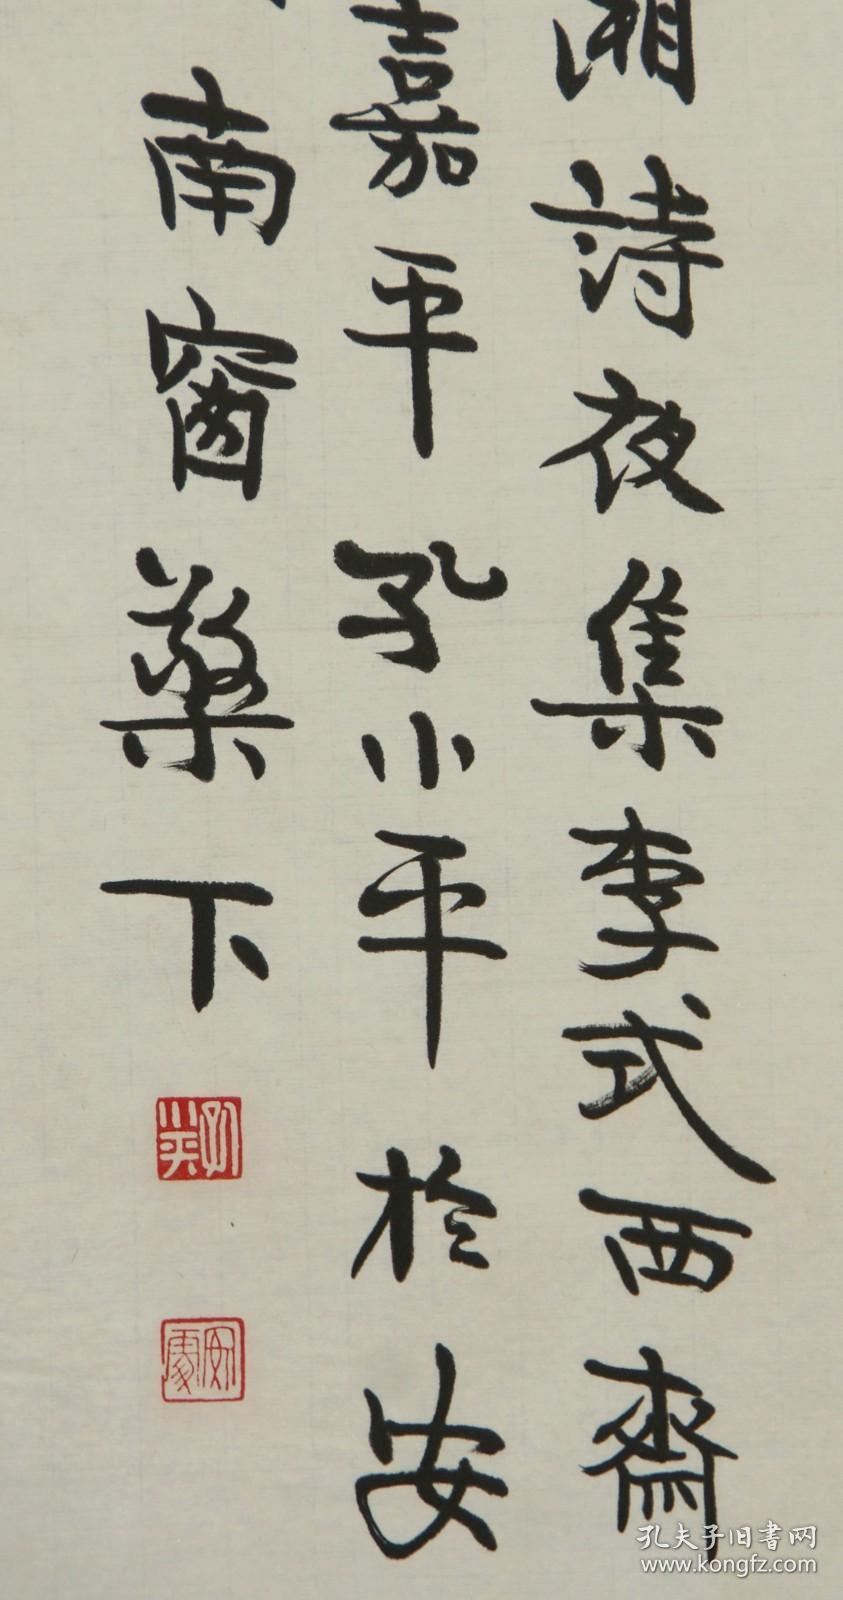 湘詩夜集李式西齋
嘉平孔小平於安
南窗檠下
孔小平
安處
孔夫子旧书网
www.kongfz.com